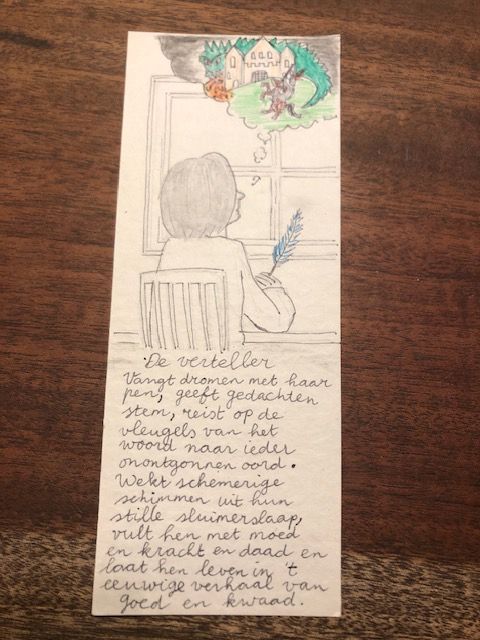 De verteller
Vangt dromen met haar
pen, geeft gedachten
stem, reist op de
vleugels van het
woord naar ieder
onontgonnen oord.
Wekt schemerige
schimmen uit hun
stille sluimerslaap,
vult hen met moed
en kracht en daad en
laat hen leven in 't
eeuwige verhaal van
goed en kwaad.